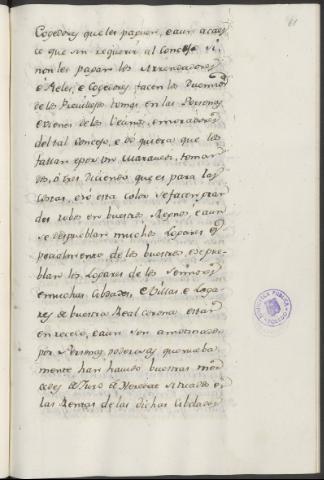 61
Cogedores que les paguen, e aun acaes
ce que sin requerir al Concejo si
non les pagan los Arrendadores
e Fieles, e Cogedores, facen los Dueños
de los Previllejos tomas en las Personas
e vienes de los Vecinos, e moradores
del tal Concejo, e do quiera que los
fallan e por un Maravedí, toman
dos, ó tres diciendo que es para las
costas, e só esta color se facen gran
des robos en vuestros Regnos, e aun
se despueblan muchos Logares es
pecialmente de los vuestros, e se pue
blan los Logares de los Señores
e muchas Cibdades, e Villas e Loga
res de vuestra Real Corona estan
en recelo, e aun son amenazados
por Personas poderosas que nueba
mente han havido vuestras mer
cedes de Juro de Heredat situados en
las Rentas de las dichas Cibdades
BIBLIOTECA PUBLICA
TOLEDO